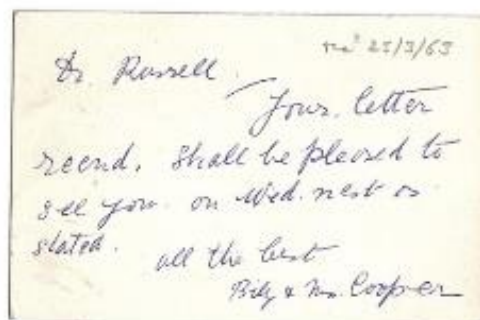 recd 25/3/63
Dr. Russell.
Your letter
recvd. Shall be pleased to
see you on Wed. next as
stated.
all the best
Billy & Mrs. Cooper